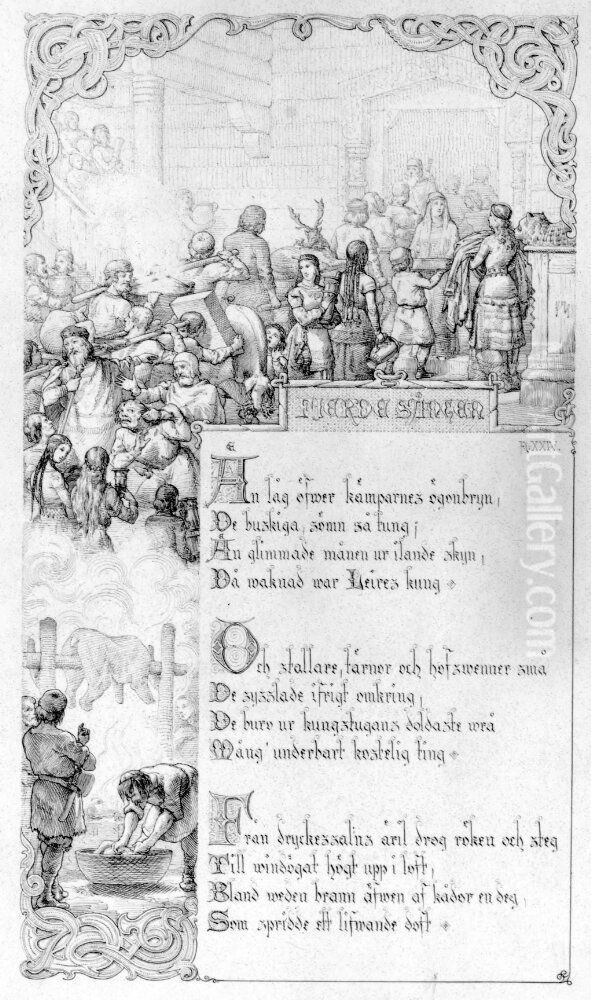 FJERDE SÅNGEN
R. XXIV.
Än låg öfwer kämparnes ögonbryn,
De buskiga, sömn så tung;
Än glimmade månen ur ilande skyn,
Då waknad war Leires kung
Och stallare, tärnor och hofswenner små
De sysslade ifrigt omkring,
De buro ur kungstugans doldaste wrå
Mång' underbart kostelig ting
Från dryckessalns äril drog röken och steg
Till windögat högt upp i loft,
Bland weden brann äfwen af kådor en deg,
Som spridde ett lifwande doft
tGallery.com